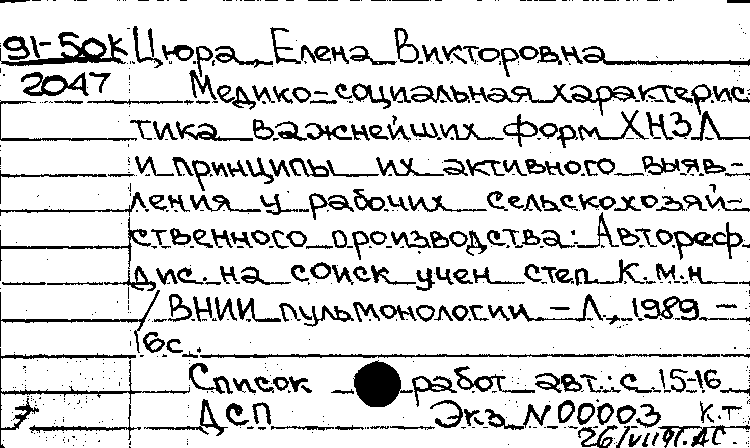 91-50К Цюра, Елена Викторовна
2047 Медико-социальная характерис
тика важнейших форм ХНЗЛ
и принципы их активного выяв-
ления у рабочих сельскохозяй-
ственного производства: Автореф
дис. на соиск учен степ к.м.н
/ ВНИИ пульмонологии – Л, 1989 –
16с.
Список работ авт.: с 15-16
7 ДСП Экз N00003 К.Т
26/VII91. ДС.